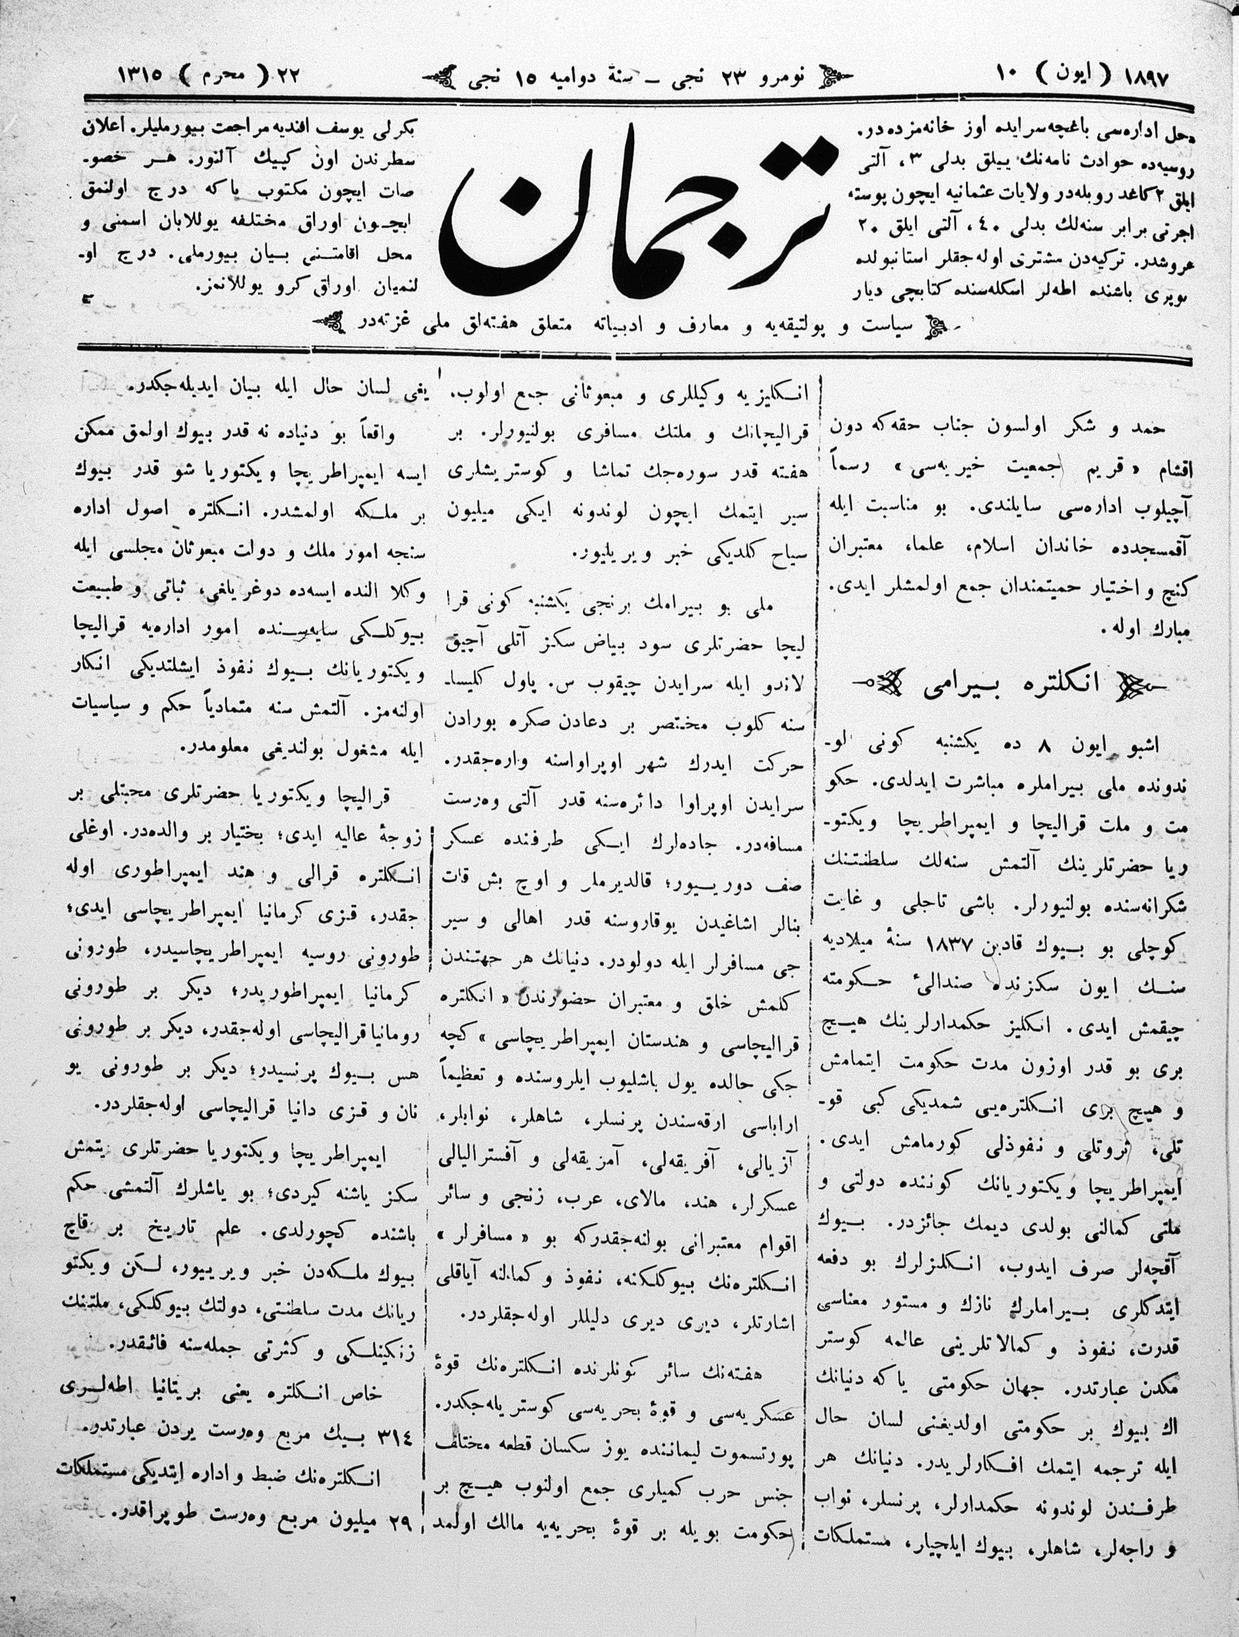 ١٨٩٧ ( ايون ) ١٠
نومرو ٢٣ نجی ــ سنۀ دواميه ١٥ نجی
٢٢ ( محرم ) ١٣١٥
محل اداره‌سی باغچه‌سرايده اوز خانه‌مزده‌در.
روسيه‌ده حوادث نامه‌نك ييلق بدلی ٣، آلتی
ايلق ٢ كاغد روبله‌در ولايات عثمانيه ايچون پوسته
اجرتی برابر سنه‌لك بدلی ٤٠، آلتی ايلق ٢٠
غروشدر. تركيه‌دن مشتری اوله‌جقلر استانبولده
كوپری باشنده اطه‌لر اسكله‌سنده كتابچی ديار
ترجمان
بكرلی يوسف افنديه مراجعت بيورمليلر. اعلان
سطرندن اون كپيك آلنور. هر خصو‍ـ
صات ايچون مكتوب ياكه درج اولنمق
ايچون اوراق مختلفه يوللايان اسمنی و
محل اقامتنی بيان بيورملی. درج او‍ـ
لنميان اوراق كرو يوللانمز.
سياست و پولتيقه‌يه و معارف و ادبياته متعلق هفته‌لق ملی غزته‌در
حمد و شكر اولسون جناب حقه‌كه دون
اقشام «قريم جمعيت خيريه‌سی» رسماً
آچيلوب اداره‌سی سايلندی. بو مناسبت ايله
آقمسجدده خاندان اسلام، علما، معتبران
كنج و اختيار حميتمندان جمع اولمشلر ايدی.
مبارك اوله.
انكلتره بيرامی
اشبو ايون ٨ ده يكشنبه كونی لو‍ـ
ندونده ملی بيراملره مباشرت ايدلدی. حكو
مت و ملت قراليچا و ايمپراطريچا ويكتو‍ـ
ريا حضرتلرينك آلتمش سنه‌لك سلطنتنك
شكرانه‌سنده بولنيورلر. باشی تاجلی و غايت
كوچلی بو بيوك قادين ١٨٣٧ سنۀ ميلاديه
سنك ايون سكزنده صندالئ حكومته
چيقمش ايدی. انكليز حكمدارلرينك هيچ
بری بو قدر اوزون مدت حكومت ايتمامش
و هيچ بری انكلتره‌يی شمديكی كبی قو‍ـ
تلی، ثروتلی و نفوذلی كورمامش ايدی.
ايمپراطريچا ويكتوريانك كوننده دولتی و
ملتی كمالنی بولدی ديمك جائزدر. بيوك
آقچه‌لر صرف ايدوب، انكلزلرك بو دفعه
ايتدكلری بيرامارك نازك و مستور معناسی
قدرت، نفوذ و كمالاتلرينی عالمه كوستر
مكدن عبارتدر. جهان حكومتی ياكه دنيانك
اك بيوك بر حكومتی اولديغنی لسان حال
ايله ترجمه ايتمك افكارلريدر. دنيانك هر
طرفندن لوندونه حكمدارلر، پرنسلر، نواب
و راجه‌لر، شاهلر، بيوك ايلچيار، مستملكات
انكليزيه وكيللری و مبعوثانی جمع اولوب.
قراليچانك و ملتك مسافری بولنيورلر. بر
هفته قدر سوره‌جك تماشا و كوستريشلری
سير ايتمك ايچون لوندونه ايكی ميليون
سياح كلديكی خبر ويريليور.
ملی بو بيرامك برنجی يكشنبه كونی قرا
ليچا حضرتلری سود بياض سكز آتلی آچيق
لاندو ايله سرايدن چيقوب س. پاول كليسا‍ـ
سنه كلوب مختصر بر دعادن صكره بورادن
حركت ايدرك شهر اوپراواسنه واره‌جقدر.
سرايدن اوپراوا دائره‌سنه قدر آلتی وه‌رست
مسافه‌در. جاده‌لرك ايكی طرفنده عسكر
صف دوريور؛ قالديرملر و اوچ بش قات
بنالر اشاغيدن يوقاروسنه قدر اهالی و سير
جی مسافرلر ايله دولودر. دنيانك هر جهتندن
كلمش خلق و معتبران حضورندن «انكلتره
قراليچاسی و هندستان ايمپراطريچاسی» كچه
جكی حالده يول باشليوب ايلروسنده و تعظيماً
اراباسی ارقه‌سندن پرنسلر، شاهلر، نوابلر،
آزيالی، آفريقه‌لی، آمريقه‌لی و آفستراليالی
عسكرلر، هند، مالای، عرب، زنجی و سائر
اقوام معتبرانی بولنه‌جقدركه بو «مسافرلر»
انكلتره‌نك بيوكلكنه، نفوذ و كمالنه آياقلی
اشارتلر، ديری ديری دليللر اوله‌جقلردر.
هفته‌نك سائر كونلرنده انكلتره‌نك قوۀ
عسكريه‌سی و قوۀ بحريه‌سی كوستريله‌جكدر.
پورتسموت ليماننده يوز سكسان قطعه مختلف
جنس حرب كميلری جمع اولنوب هيچ بر
حكومت بويله بر قوۀ بحريه‌يه مالك اولمد
يغی لسان حال ايله بيان ايديله‌جكدر.
واقعاً بو دنياده نه قدر بيوك اولمق ممكن
ايسه ايمپراطريچا ويكتوريا شو قدر بيوك
بر ملكه اولمشدر. انكلتره اصول اداره
سنجه امور ملك و دولت مبعوثان مجلسی ايله
وكلا النده ايسه‌ده دوغريلغی، ثباتی و طبيعت
بيوكلكی سايه‌سنده امور اداره‌يه قراليچا
ويكتوريانك بيوك نفوذ ايشلتديكی انكار
اولنه‌مز. آلتمش سنه متمادياً حكم و سياسيات
ايله مشغول بولنديغی معلومدر.
قراليچا ويكتوريا حضرتلری محبتلی بر
زوجۀ عاليه ايدی؛ بختيار بر والده‌در. اوغلی
انكلتره قرالی و هند ايمپراطوری اوله
جقدر، قزی كرمانيا ايمپراطريچاسی ايدی؛
طورونی روسيه ايمپراطريچاسيدر، طورونی
كرمانيا ايمپراطوريدر؛ ديكر بر طورونی
رومانيا قراليچاسی اوله‌جقدر، ديكر بر طورونی
هس بيوك پرنسيدر؛ ديكر بر طورونی يو
نان و قزی دانيا قراليچاسی اوله‌جقلردر.
ايمپراطريچا ويكتوريا حضرتلری يتمش
سكز ياشنه كيردی؛ بو ياشلرك آلتمشی حكم
باشنده كچورلدی. علم تاريخ بر قاچ
بيوك ملكه‌دن خبر ويرييور، لكن ويكتو
ريانك مدت سلطنتی، دولتك بيوكلكی، ملتنك
زنكينلكی و كثرتی جمله‌سنه فائقدر.
خاص انكلتره يعنی بريتانيا اطه‌لری
٣١٤ بيك مربع وه‌رست يردن عبارتدر.
انكلتره‌نك ضبط و اداره ايتديكی مستملكات
٢٩ ميليون مربع وه‌رست طوپراقدر.